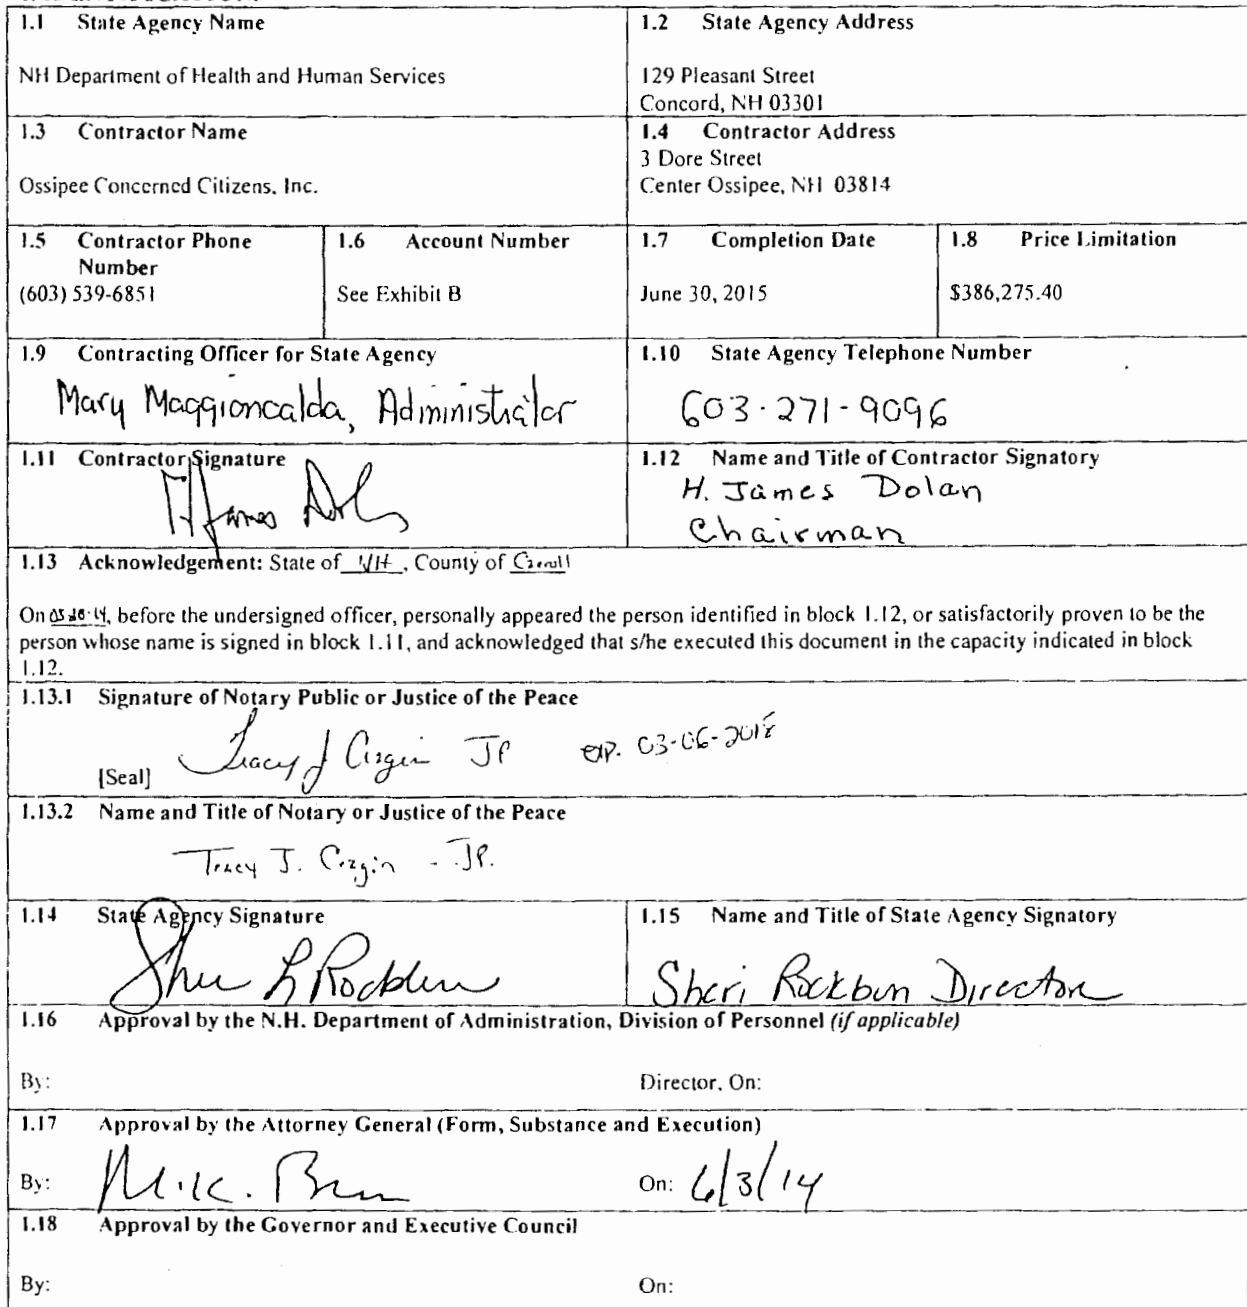 1.1 State Agency Name
NH Department of Health and Human Services
1.2 State Agency Address
129 Pleasant Street
Concord, NH 03301
1.3 Contractor Name
Ossipee Concerned Citizens, Inc.
1.4 Contractor Address
3 Dore Street
Center Ossipee, NH 03814
1.5 Contractor Phone
Number
(603) 539-6851
1.6 Account Number
See Exhibit B
1.7 Completion Date
June 30, 2015
1.8 Price Limitation
$386,275.40
1.9 Contracting Officer for State Agency
Mary Maggioncalda, Administrator
1.10 State Agency Telephone Number
603-271-9096
1.11 Contractor Signature
1.12 Name and Title of Contractor Signatory
H. James Dolan
Chairman
1.13 Acknowledgement: State of NH, County of Carroll
On, before the undersigned officer, personally appeared the person identified in block 1.12, or satisfactorily proven to be the
person whose name is signed in block 1.11, and acknowledged that s/he executed this document in the capacity indicated in block
1.12.
1.13.1 Signature of Notary Public or Justice of the Peace
Tracy J JP exp.
[Seal]
1.13.2 Name and Title of Notary or Justice of the Peace
Tracy J. - JP.
1.14 State Agency Signature
1.15 Name and Title of State Agency Signatory
Sheri Rockburn Director
1.16 Approval by the N.H. Department of Administration, Division of Personnel (if applicable)
By:
Director, On:
1.17 Approval by the Attorney General (Form, Substance and Execution)
By:
On: 6/3/14
1.18 Approval by the Governor and Executive Council
By:
On: